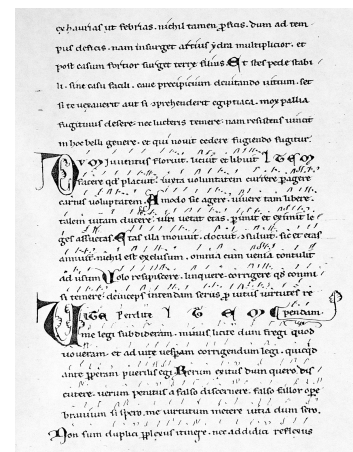 exhaurias ut febrias. nichil tamen ꝓficis. dum ad tem
pus deficis. nam insurget artius ydra multiplicior. et
post casum fortior surget terre filius. Et stes pede stabi
li. sine casu facili. cave precipicium devitando vitium. set
si te vexaverit aut si ꝯprehenderit egiptiaca. mox pallia
fugitiuus desere. nec lucteris temere. nam resistens vincit
in hoc belli genere. et qui novit cedere fugiendo fugitur.
Dum iuventus floruit. licuit et libuit ITEM
facere qd placuit. iuxta voluntatem currere pagere
carnis voluptatem. Amodo sic agere. vivere tam libere.
talem vitam ducere. viri vetat etas. pimit et eximit le
ges assuetas. Etas illa monuit. docuit. ꝯsuluit. sic et etas
annuit. nichil est exclusum. omnia cum venia contulit
ad usum. Volo resipiscere. linquere. corrigere qd commi
si temere. deinceps intendam seriis ꝓ vitiis virtutes re
VITE Perdite ITEM pendam.
me legi subdideram. minus licite dum fregi quod
voveram. et ad vite vespam corrigendum legi. quicqd
ante pperam puerilis egi. Rerum exitus dum quero dis
cutere. verum penitus a falso discernere. falso fallor ope.
bravium si spero. me virtutum metere vitia dum sero.
Non sum duplici pplexus itinere. nec addidici reflexus